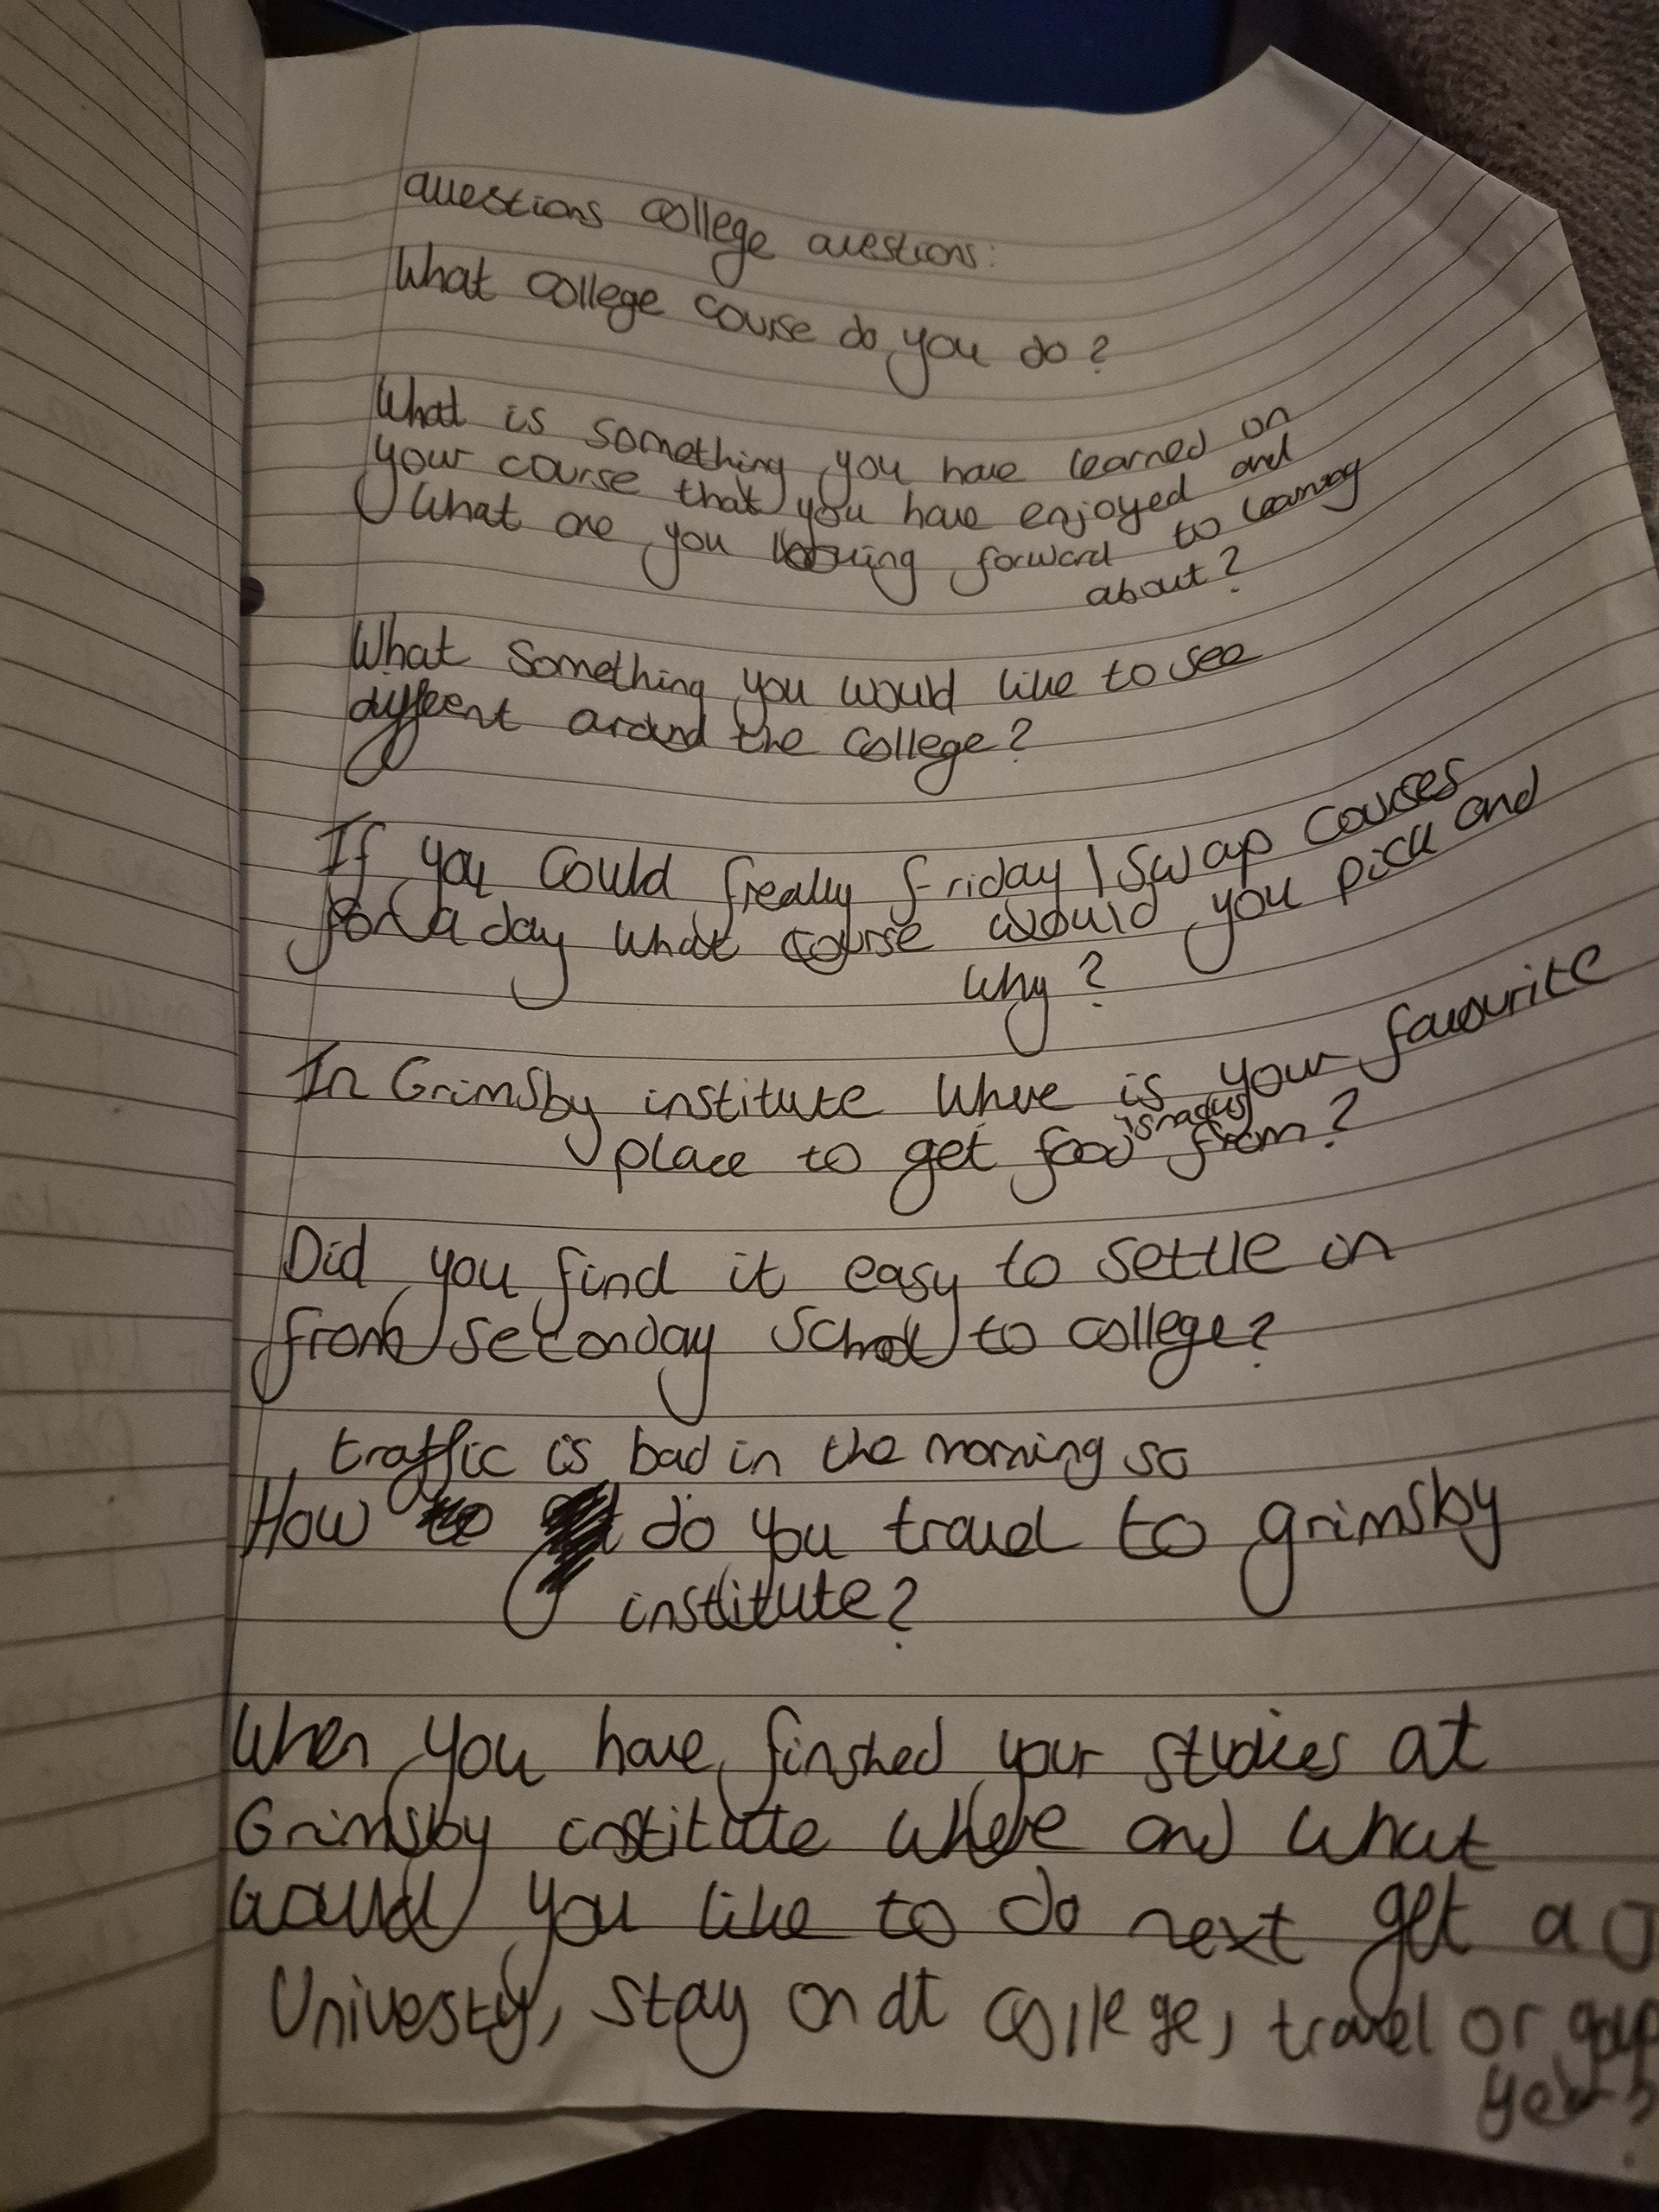 questions college questions:
What college course do you do?
What is something you have learned on
your course that you have enjoyed and
What are you looking forward to learning
about?
What something you would like to see
different around the college?
If you could freaky friday / swap courses
for a day what course would you pick and
why?
In Grimsby institute where is your favourite
place to get food from?
Did you find it easy to settle in
from seconday school to college?
traffic is bad in the morning so
How do you travel to grimsby
institute?
When you have finshed your studies at
Grimsby institute where and what
would you like to do next get a
Universty, stay on at college, travel or gap
year?